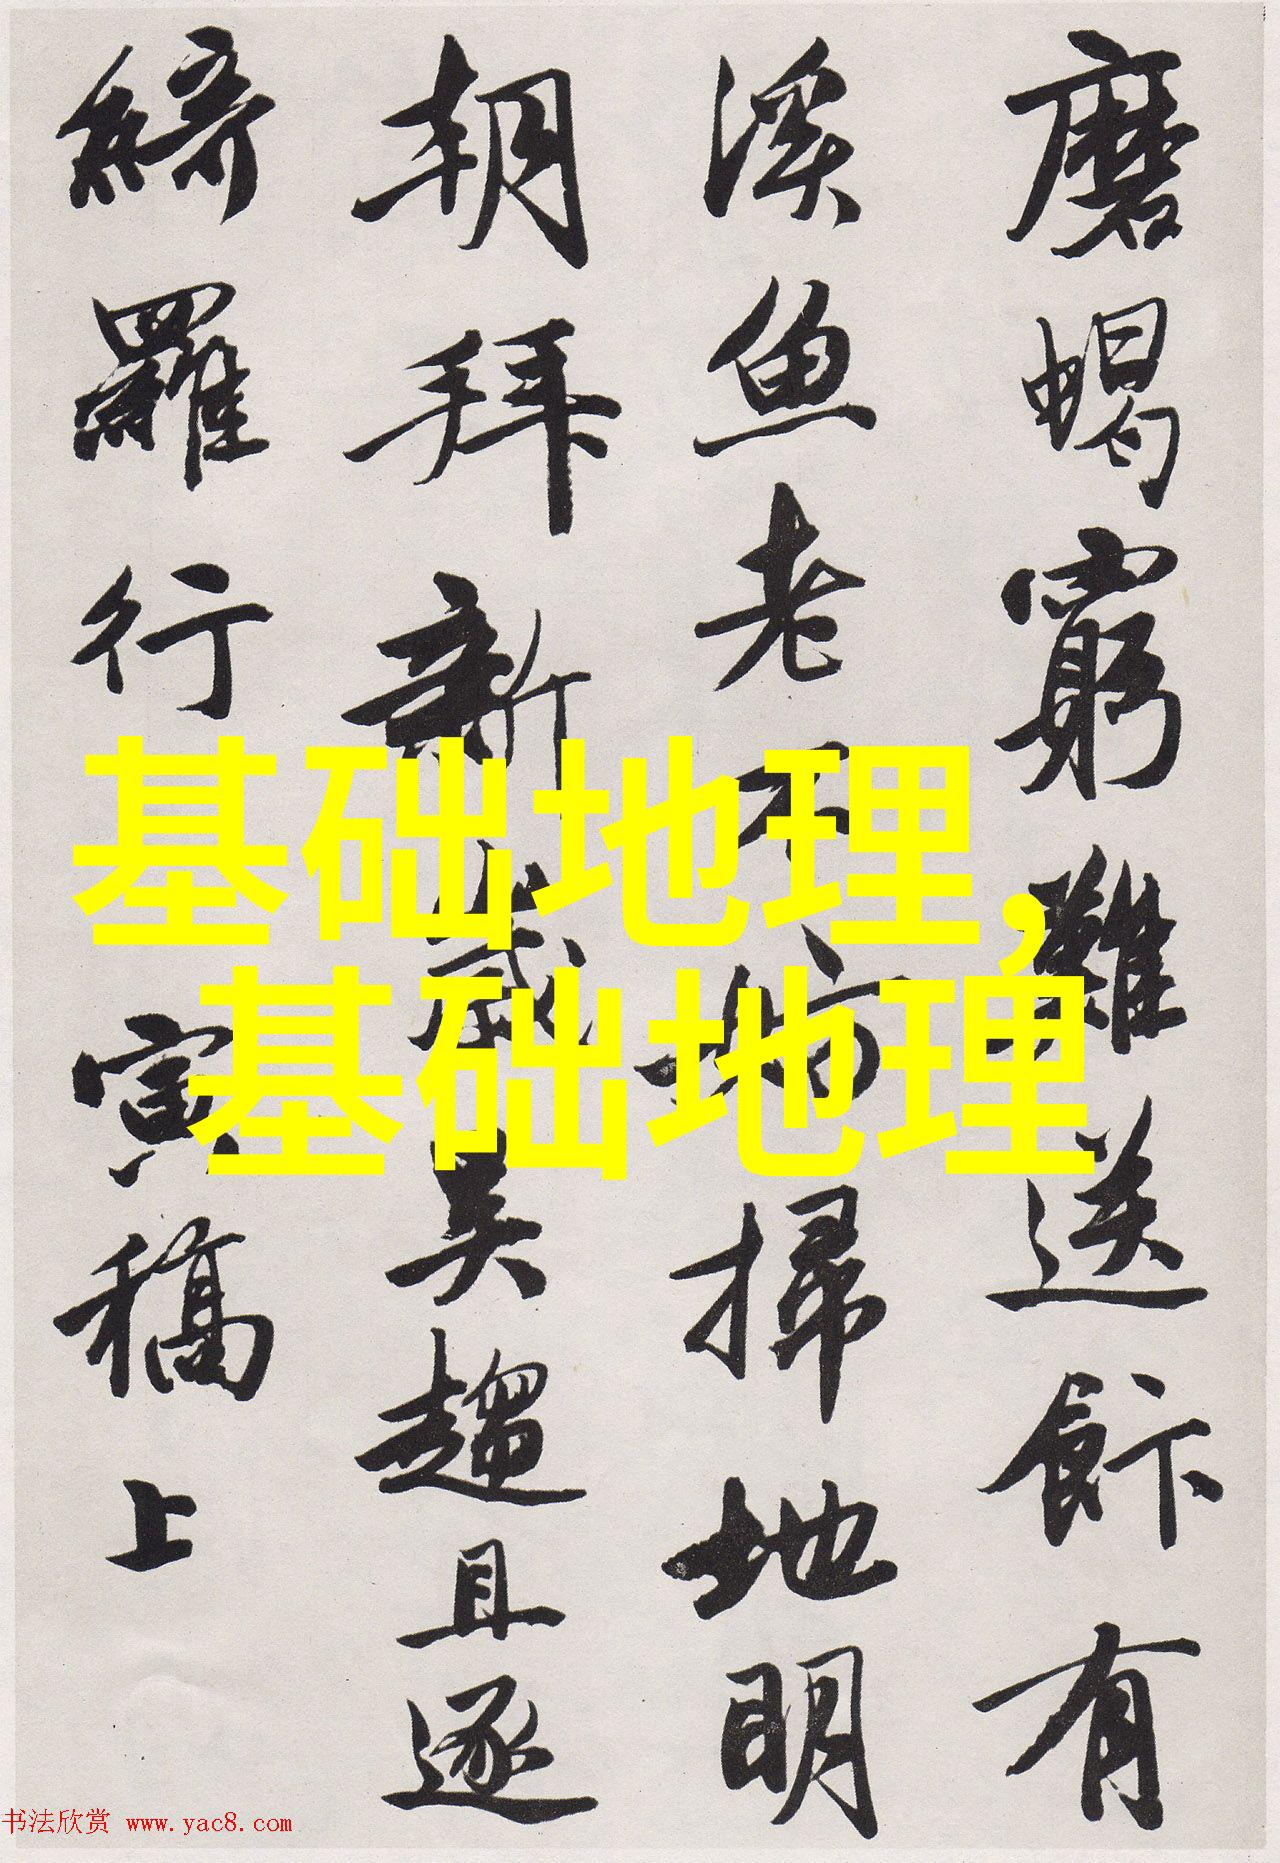 磨蝎窮難送餅有
溪魚老不妨掃地明
朝拜新歲吴趨且逐
綺羅行 寅稿上
基础地理,
基础地理
书法欣赏 www.yac8.com